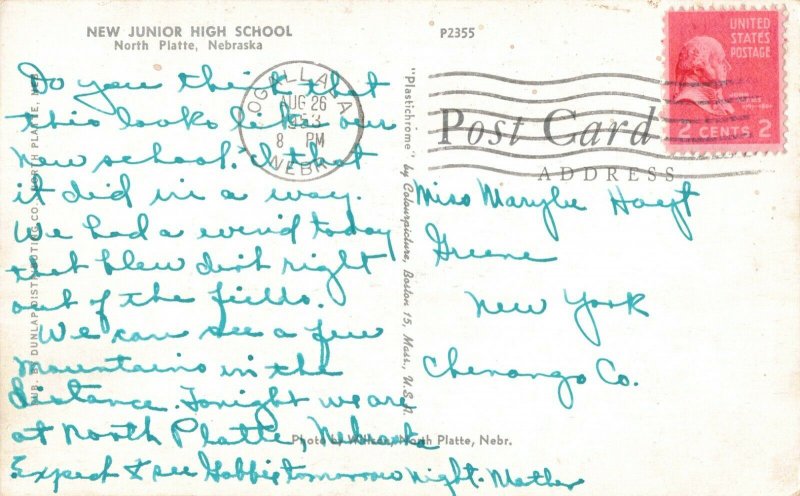 NEW JUNIOR HIGH SCHOOL
North Platte, Nebraska
Do you think that
this looks like our
new school. I that
it did in a way.
We had a wind today
that blew dirt right
out of the fields.
We can see a few
Mountains in the
distance. Tonight we are
at North Platte, Nebraska
Expect to see tomorrow night. Mother
PUB. BY DUNLAP DISTRIBUTING CO., NORTH PLATTE, NEB.
OGALLALA
AUG 26
1953
8 PM
NEBR.
"Plastichrome" by Colourpicture, Boston 15, Mass., U.S.A.
P2355
Post Card
ADDRESS
UNITED
STATES
POSTAGE
JOHN
2 CENTS 2
Miss Marybe Hoyt
Greene
New York
Chenango Co.
Photo by North Platte, Nebr.